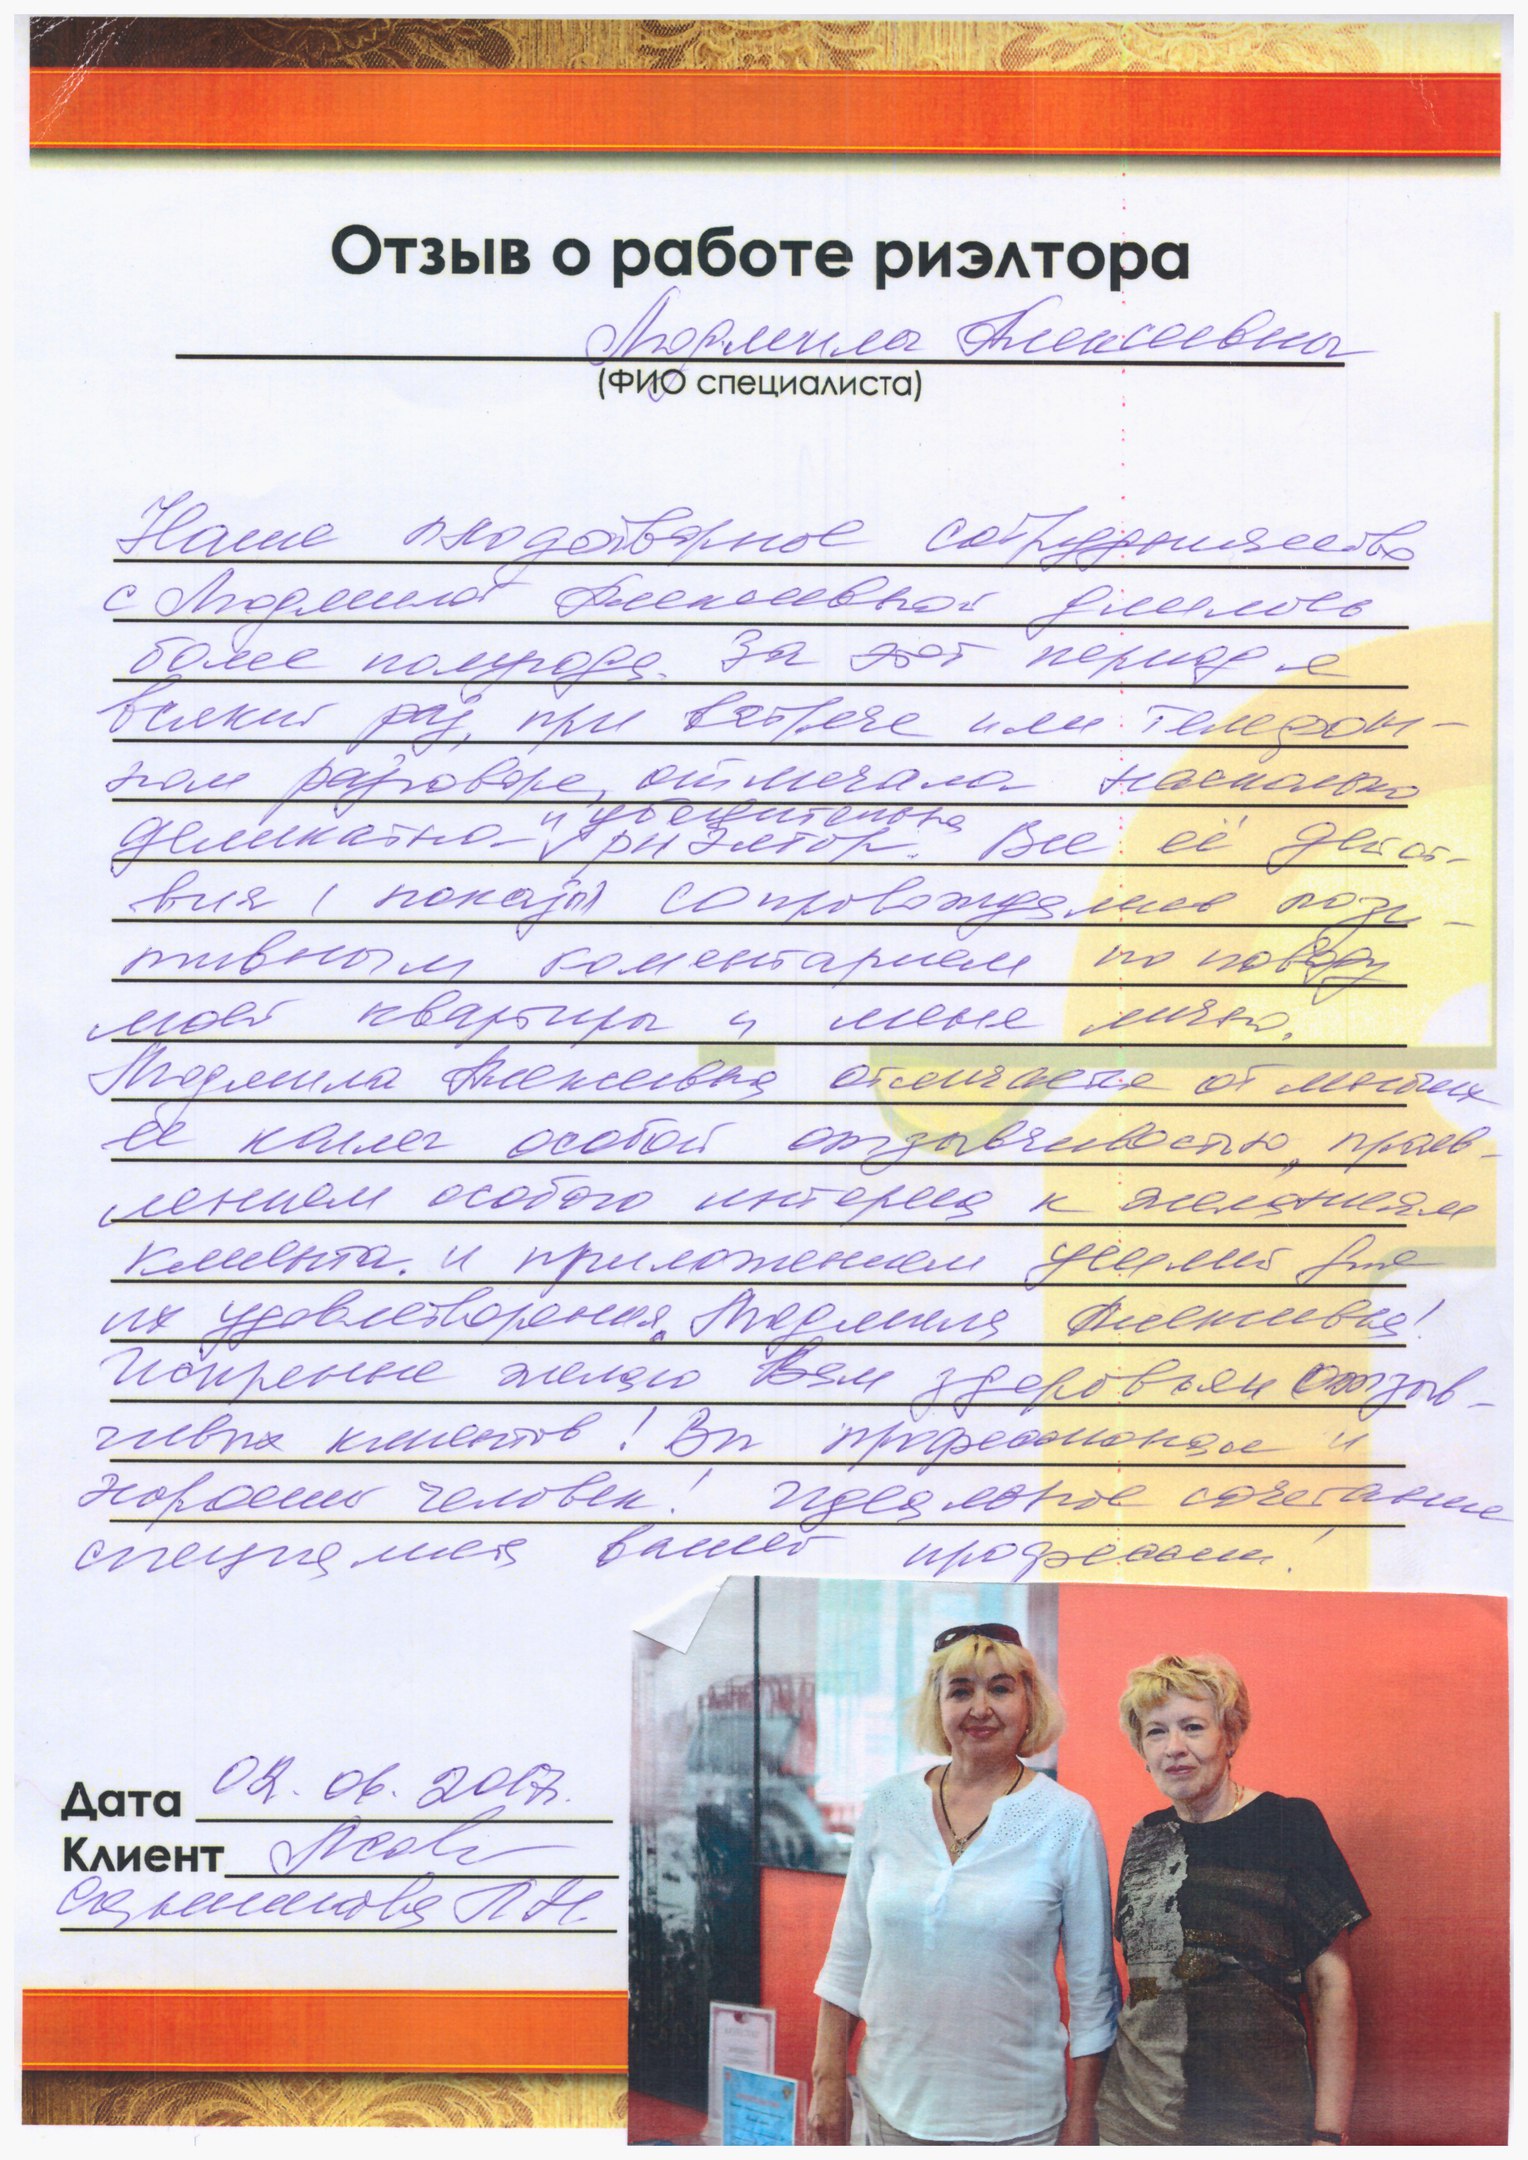 Отзыв о работе риэлтора
Людмила Алексеевна
(ФИО специалиста)
Наше плодотворное сотрудничество
с Людмилой Алексеевной длилось
более полугода. За этот период я
всякий раз, при встрече или телефон-
ном разговоре, отмечала насколько
и убедительна
деликатна риэлтор. Все её дейст-
вия, показы сопровождались пози-
тивным коментарием по поводу
моей квартиры и меня лично.
Людмила Алексеевна отличается от многих
её коллег особой отзывчивостью, прояв-
лением особого интереса к желаниям
клиента. и приложением усилий для
их удовлетворения. Людмила Алексеевна!
Искренне желаю Вам здоровья и отзыв-
чивых клиентов! Вы профессионал и
хороший человек! Идеальное сочетание
специалиста вашей профессии!
Дата 02.06.2017.
Клиент
Садынникова Л.Н.